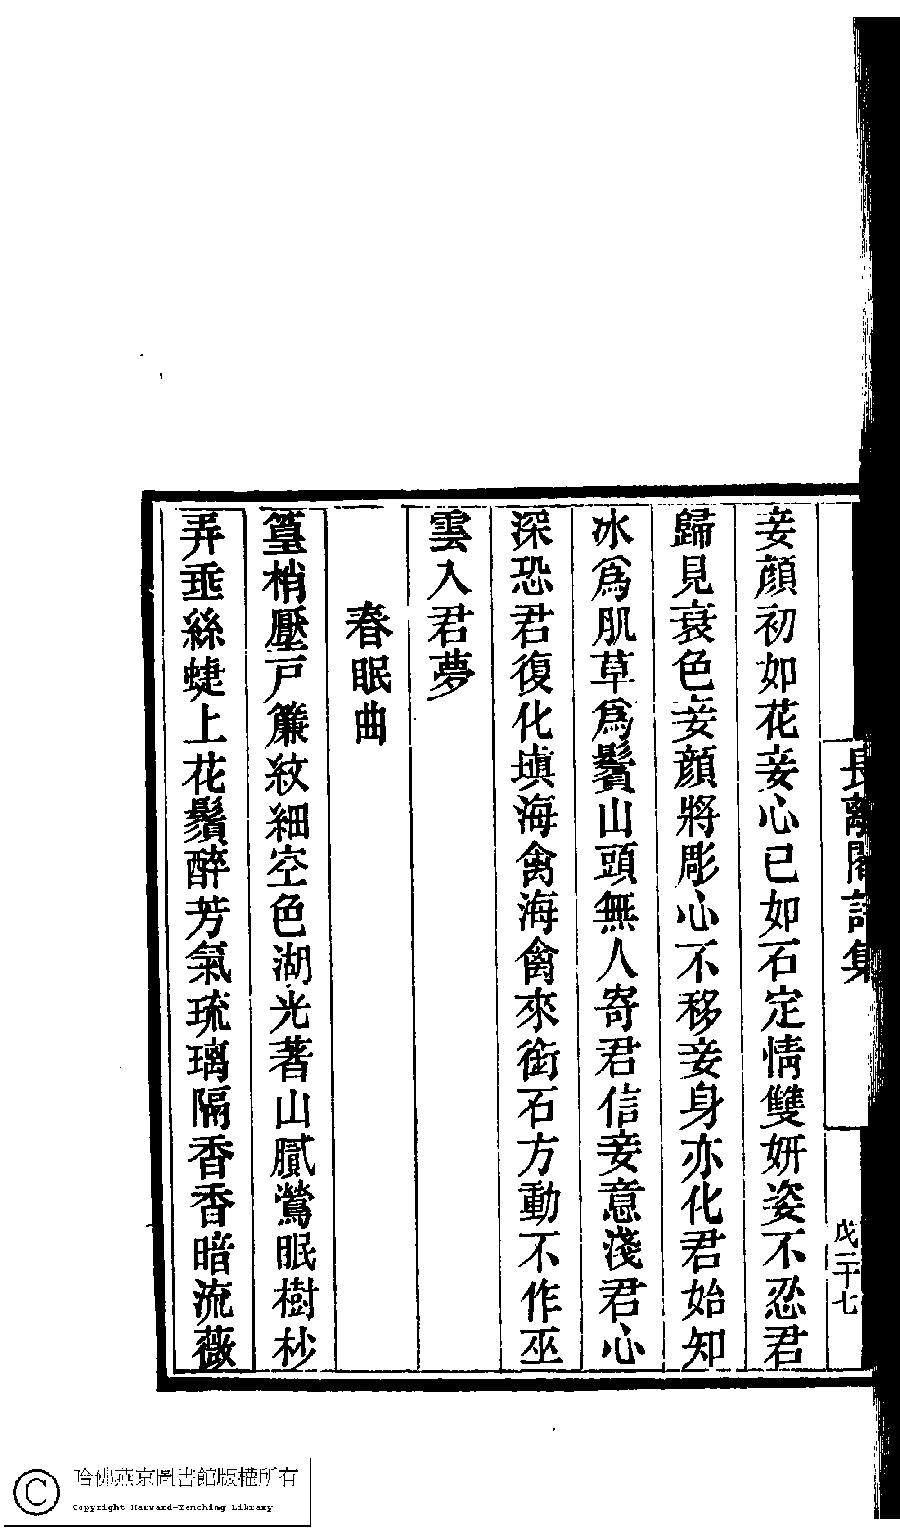 長離閣詩集
戊二十七
妾顔初如花妾心已如石定情雙妍姿不忍君
歸見衰色妾顔將彫心不移妾身亦化君始知
冰爲肌草爲鬢山頭無人寄君信妾意淺君心
深恐君復化塡海禽海禽來銜石方動不作巫
雲入君夢
春眠曲
篁梢壓戸簾紋細空色湖光著山膩鶯眠樹杪
弄垂絲蜨上花鬚醉芳氣琉璃隔香香暗流薇
哈佛燕京圖書館版權所有
Copyright Harvard-Yenching Library